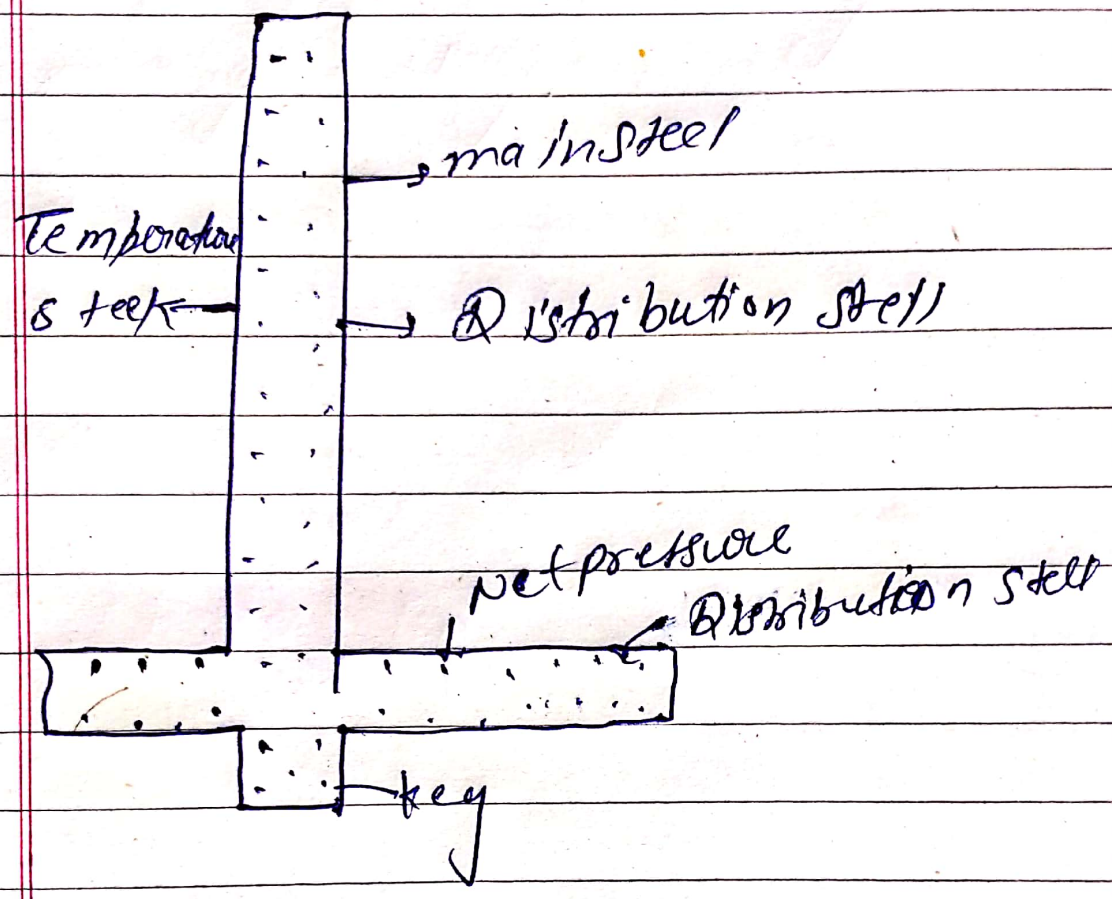 main steel
Temperature
steel
Distribution stell
Net pressure
Distribution stell
key